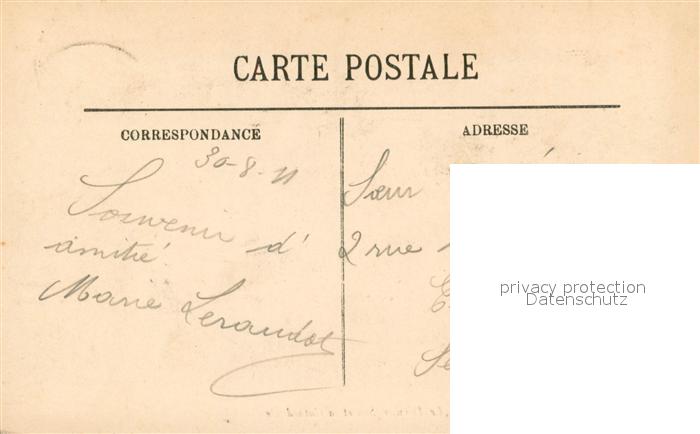 CARTE POSTALE
CORRESPONDANCE
ADRESSE
30-8-11
Souvenir d'
amitié.
Marie Leraudot
Sœur
2 rue
privacy protection
Datenschutz